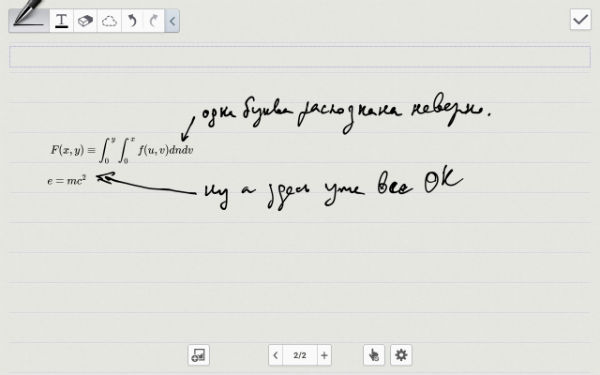 T
одна буква распознана неверно.
F(x, y) ≡ ∫₀^y ∫₀^x f(u, v)dndv
e = mc²
ну а здесь уже все ОК
2/2